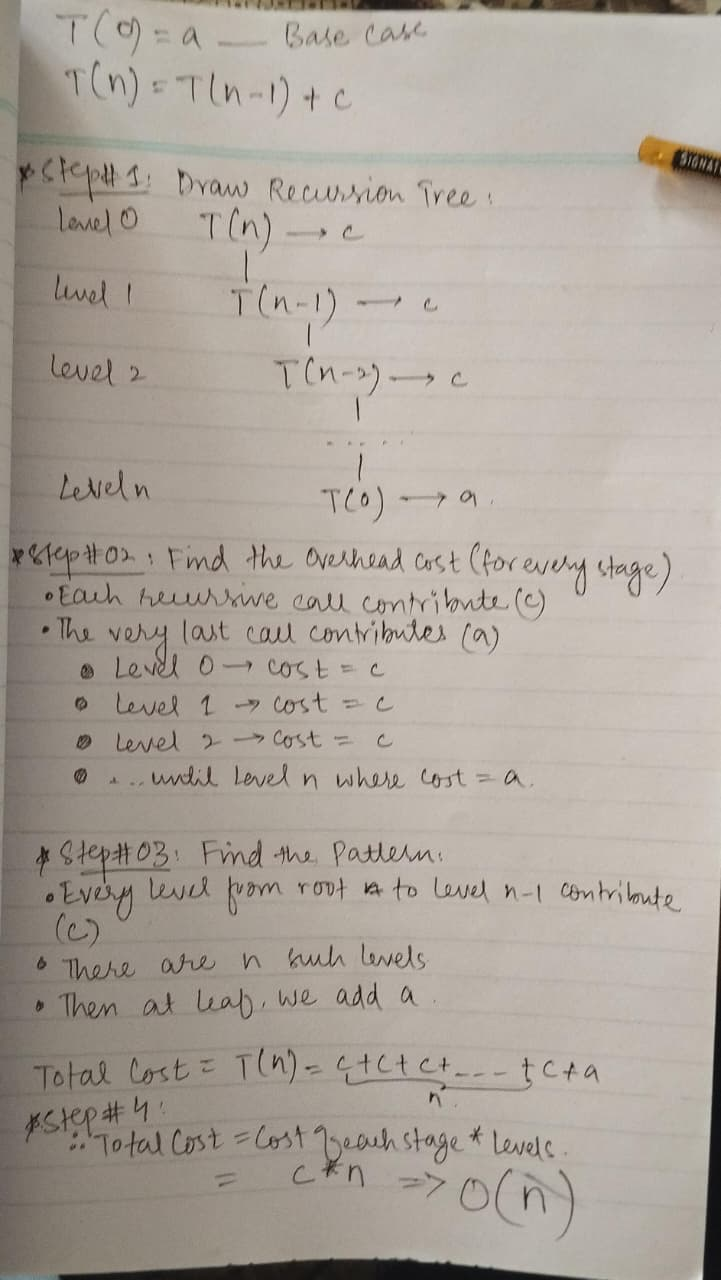 T(0) = a — Base case
T(n) = T(n-1) + c
SIGNAT
* Step# 1: Draw Recursion Tree:
Level 0 T(n) → c
|
Level 1 T(n-1) → c
|
Level 2 T(n-2) → c
|
.....
|
Level n T(0) → a.
* Step #02: Find the Overhead cost (for every stage)
• Each recursive call contribute (c)
• The very last call contributes (a)
• Level 0 → cost = c
• Level 1 → cost = c
• Level 2 → cost = c
• ... until Level n where cost = a.
* Step#03: Find the Pattern:
• Every level from root to level n-1 contribute
(c)
• There are n such levels
• Then at leaf, we add a.
Total Cost = T(n) = c+c+c+---+c+a
n
* Step #4:
∴ Total Cost = Cost of each stage * Levels.
= c*n => O(n)